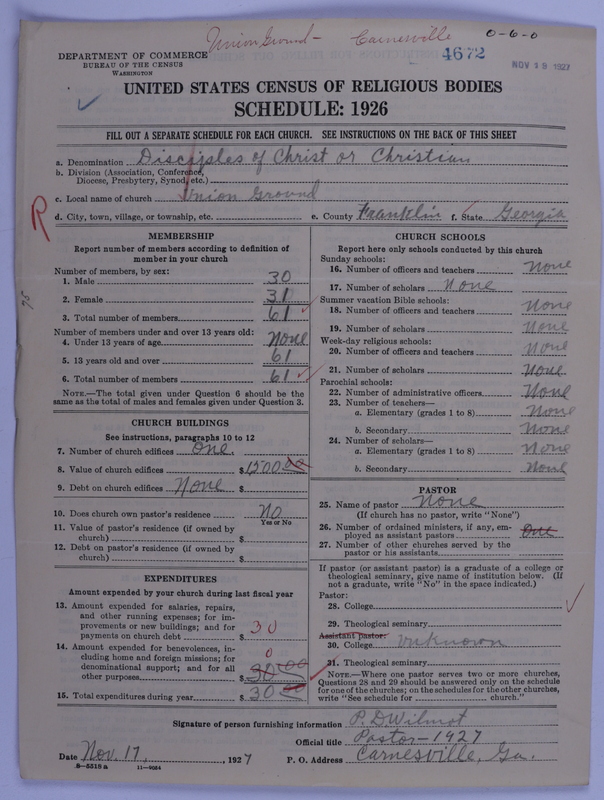 Union Ground - Carnesville
0-6-0
4672
NOV 19 1927
DEPARTMENT OF COMMERCE
BUREAU OF THE CENSUS
WASHINGTON
UNITED STATES CENSUS OF RELIGIOUS BODIES
SCHEDULE: 1926
FILL OUT A SEPARATE SCHEDULE FOR EACH CHURCH. SEE INSTRUCTIONS ON THE BACK OF THIS SHEET
a. Denomination Disciples of Christ or Christian
b. Division (Association, Conference,
Diocese, Presbytery, Synod, etc.)
c. Local name of church Union Ground
R
d. City, town, village, or township, etc. e. County Franklin f. State Georgia
MEMBERSHIP
Report number of members according to definition of
member in your church
Number of members, by sex:
1. Male 30
2. Female 31
3. Total number of members 61
Number of members under and over 13 years old:
4. Under 13 years of age None
5. 13 years old and over 61
6. Total number of members 61
NOTE.—The total given under Question 6 should be
same as the total of males and females given under Question 3.
CHURCH BUILDINGS
See instructions, paragraphs 10 to 12
7. Number of church edifices one.
8. Value of church edifices $1500.00
9. Debt on church edifices None $
10. Does church own pastor's residence No
Yes or No
11. Value of pastor's residence (if owned by
church) $
12. Debt on pastor's residence (if owned by
church) $
EXPENDITURES
Amount expended by your church during last fiscal year
13. Amount expended for salaries, repairs,
and other running expenses; for im-
provements or new buildings; and for
payments on church debt $ 30
14. Amount expended for benevolences, in-
cluding home and foreign missions; for 0
denominational support; and for all
other purposes $ 30.00
15. Total expenditures during year $ 30.00
CHURCH SCHOOLS
Report here only schools conducted by this church
Sunday schools:
16. Number of officers and teachers None
17. Number of scholars None
Summer vacation Bible schools:
18. Number of officers and teachers None
19. Number of scholars None
Week-day religious schools:
20. Number of officers and teachers None
21. Number of scholars None
Parochial schools:
22. Number of administrative officers None
23. Number of teachers—
a. Elementary (grades 1 to 8) None
b. Secondary None
24. Number of scholars—
a. Elementary (grades 1 to 8) None
b. Secondary None
PASTOR
25. Name of pastor None
(If church has no pastor, write "None")
26. Number of ordained ministers, if any, em-
ployed as assistant pastors One
27. Number of other churches served by the
pastor or his assistants
If pastor (or assistant pastor) is a graduate of a college or
theological seminary, give name of institution below. (If
not a graduate, write "No" in the space indicated.)
Pastor:
28. College
29. Theological seminary
Assistant pastor:
30. College Unknown
31. Theological seminary
NOTE.—Where one pastor serves two or more churches,
Questions 28 and 29 should be answered only on the schedule
for one of the churches; on the schedules for the other churches,
write "See schedule for church."
Signature of person furnishing information P. D Wilmot
Official title Pastor-1927
Date Nov. 17, 1927 P. O. Address Carnesville, Ga.
8-5318a 11-9034